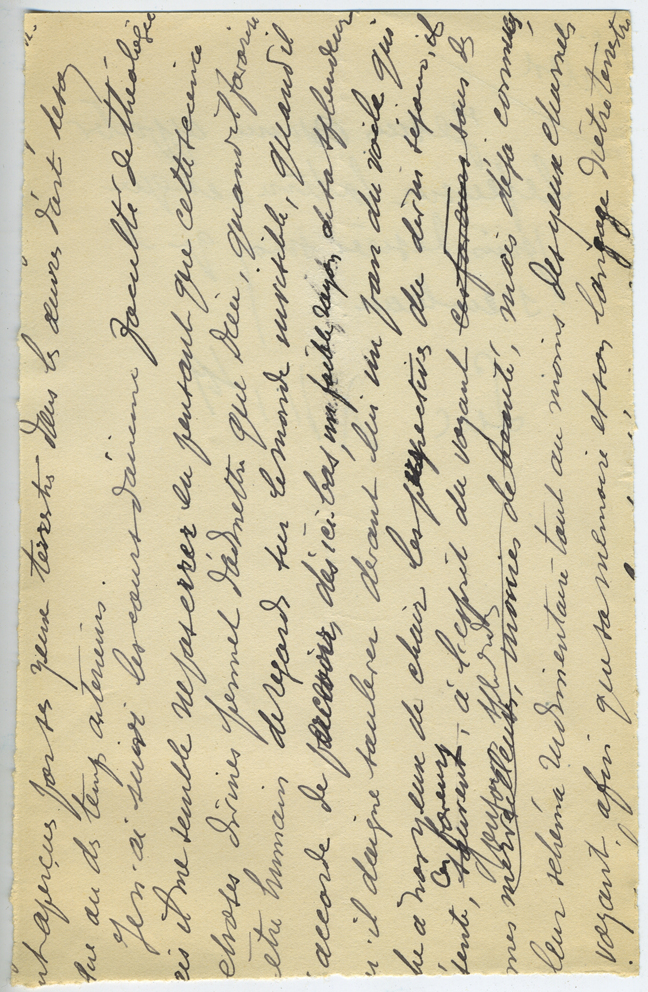 aperçues par ses yeux terrestres dans les œuvres d'art de son
ou des temps antérieurs.
Je n'ai suivi les cours d'aucune faculté de théologie
il me semble ne pas errer en pensant que cette science
choses divines permet d'admettre que Dieu, quand il favorise
être humain de regards sur le monde invisible, quand il
accorde de percevoir, dès ici-bas, un faible rayon de sa splendeur
qu'il daigne soulever devant lui un pan du voile qui
à nos yeux de chair les perspectives du divin séjour, et
ces formes
tente, souvent, à l'esprit du voyant ces formes sous des
merveilleuses, mories de beauté, mais déjà connues
leur schéma rudimentaire tout au moins des yeux charnels
voyant, afin que sa mémoire et son langage d'être terrestre